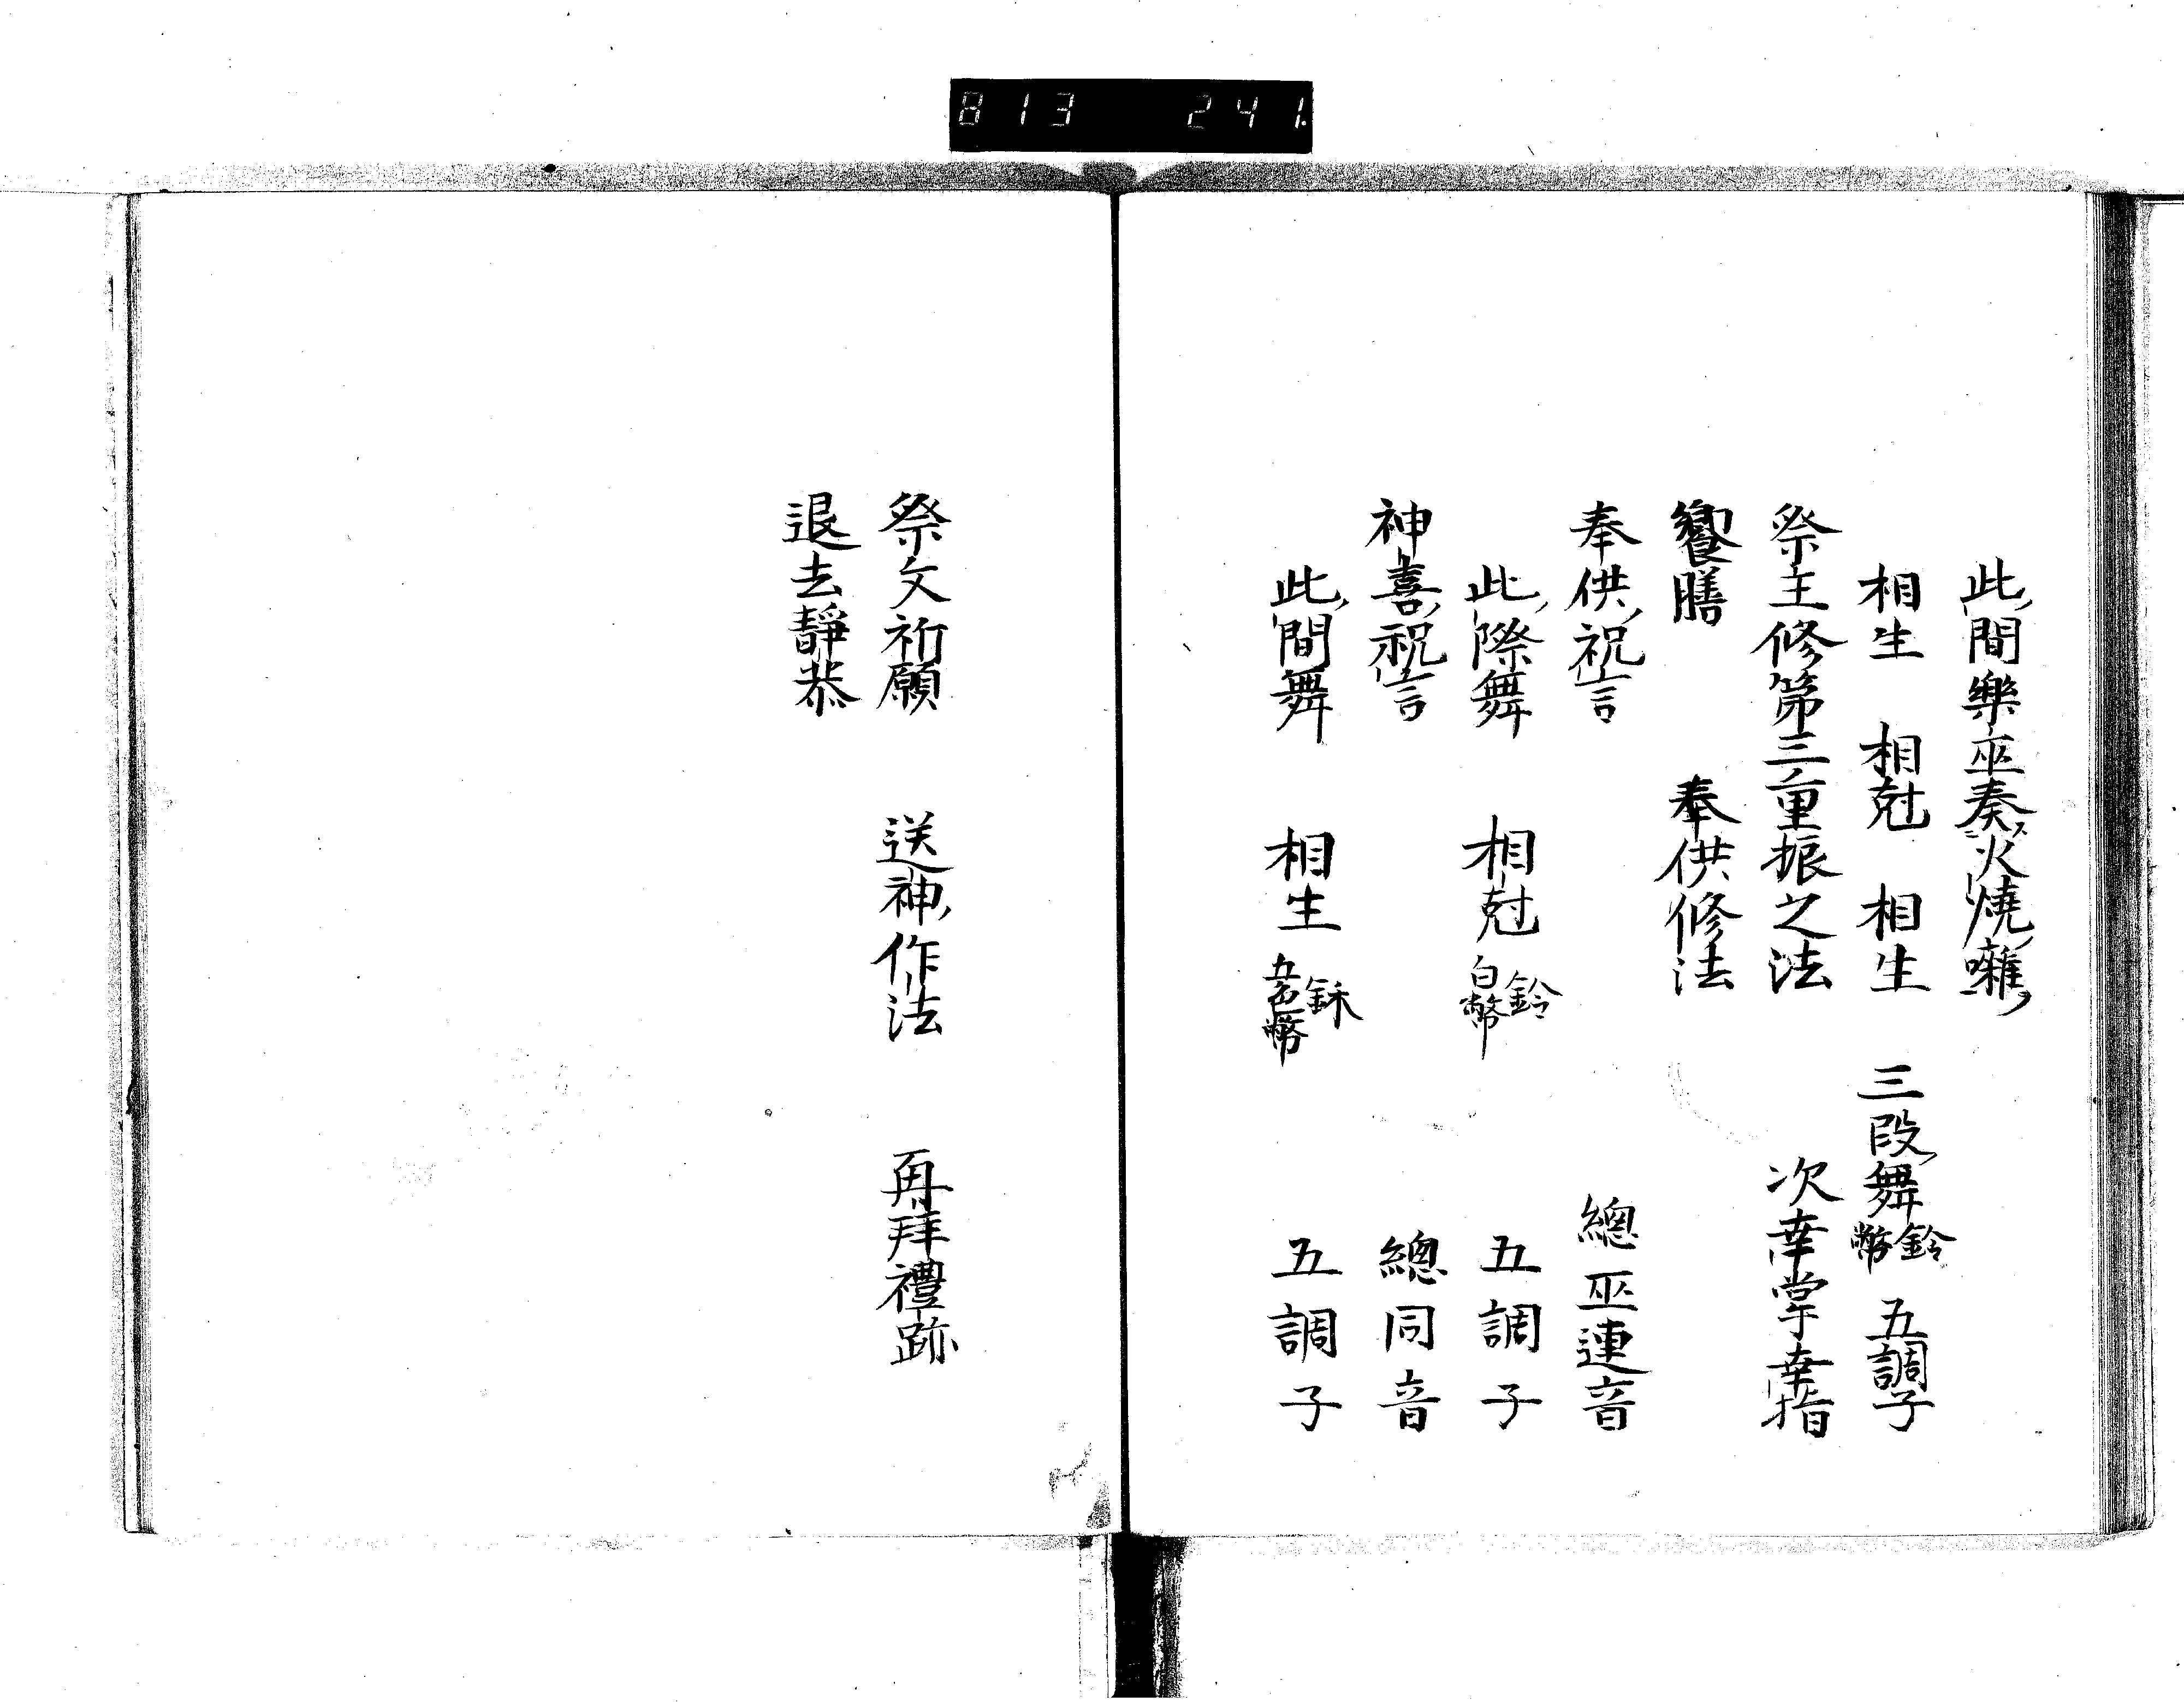 813 241.
此間樂巫奏火燒囃
相生 相尅 相生 三段舞 鈴幣 五調子
祭主修第三重振之法 次幸掌幸指
饗膳 奉供修法
奉供祝言 總巫連音
此際舞 相尅 鈴白幣 五調子
神喜祝言 總同音
此間舞 相生 五色幣 五調子
祭文祈願 送神作法 再拜禮跡
退去靜恭